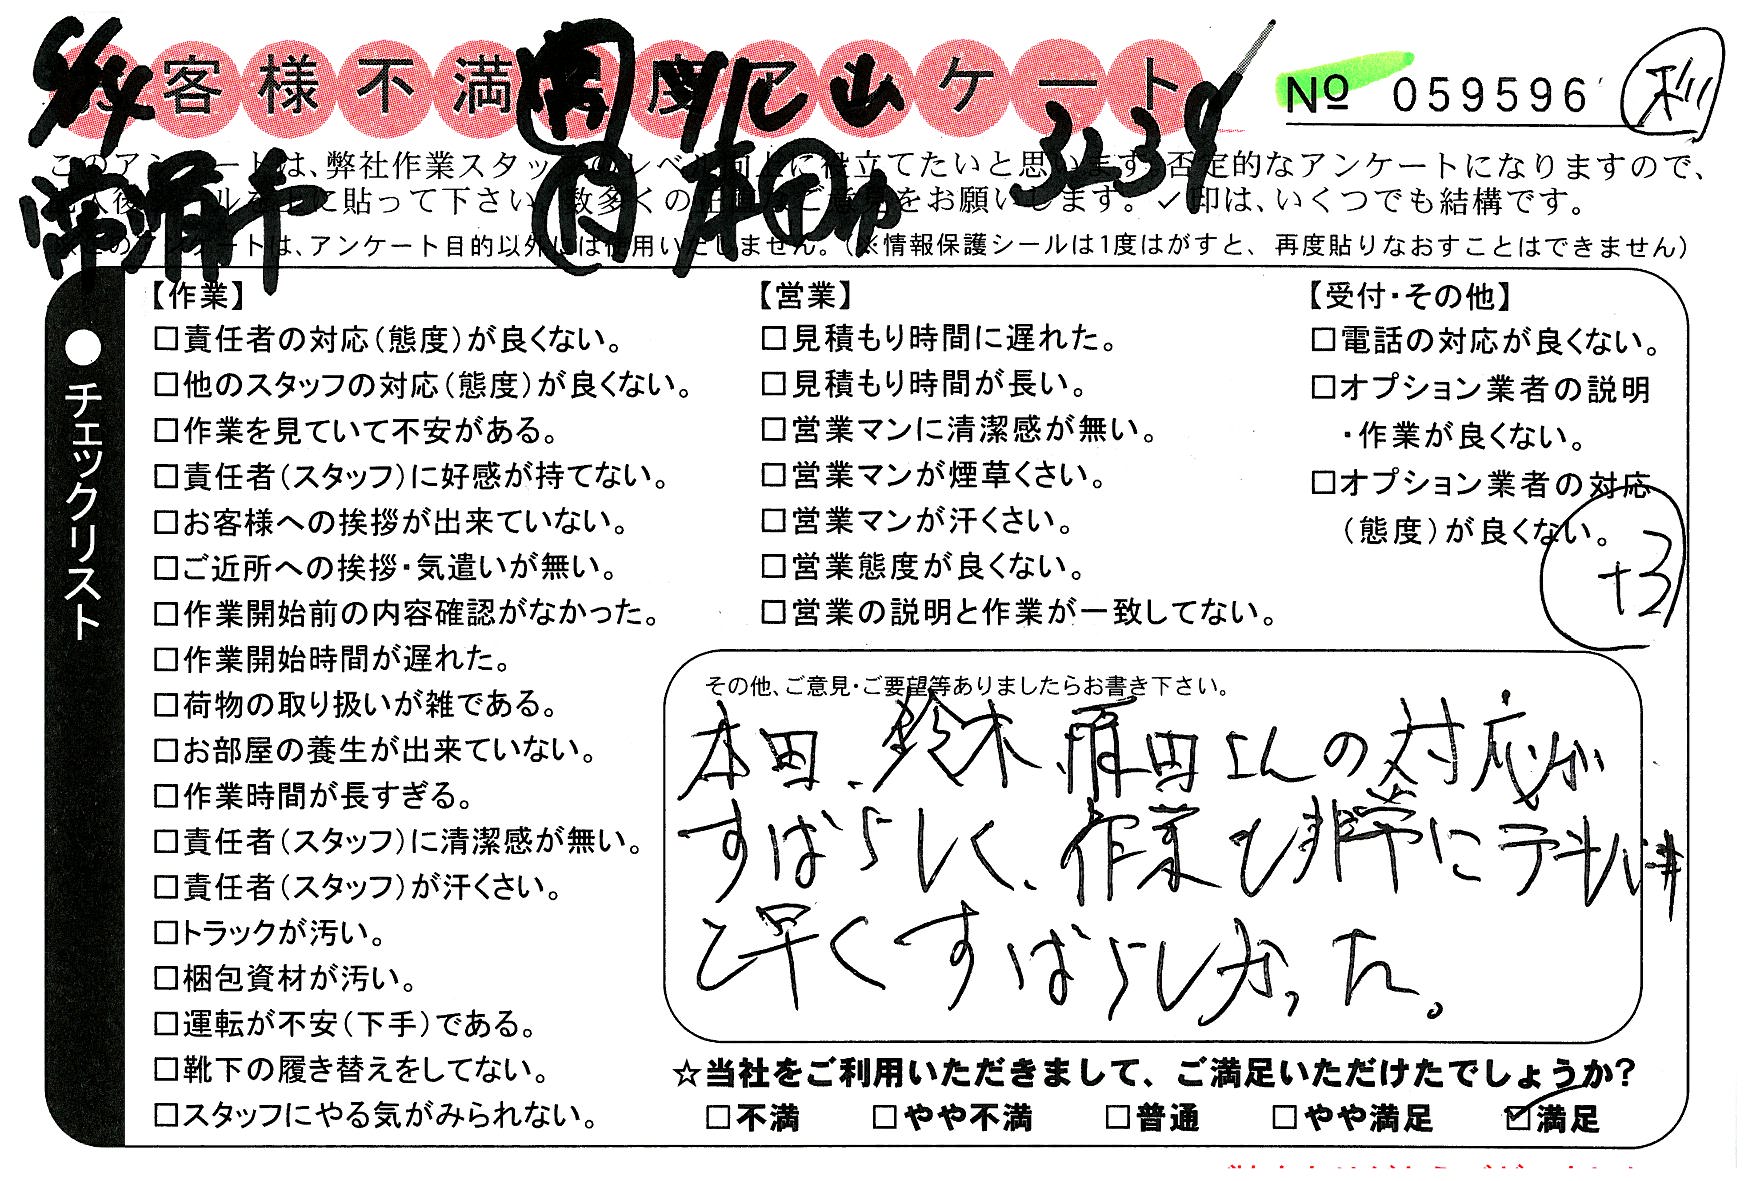 客様不満足度アンケート
No 059596
3239
このアンケートは、弊社作業スタッフのレベル向上に役立てたいと思います。否定的なアンケートになりますので、
に貼って下さい 数多くの をお願いします。✓印は、いくつでも結構です。
は、アンケート目的以外には使用いたしません。(※情報保護シールは1度はがすと、再度貼りなおすことはできません)
●チェックリスト
【作業】
□責任者の対応(態度)が良くない。
□他のスタッフの対応(態度)が良くない。
□作業を見ていて不安がある。
□責任者(スタッフ)に好感が持てない。
□お客様への挨拶が出来ていない。
□ご近所への挨拶・気遣いが無い。
□作業開始前の内容確認がなかった。
□作業開始時間が遅れた。
□荷物の取り扱いが雑である。
□お部屋の養生が出来ていない。
□作業時間が長すぎる。
□責任者(スタッフ)に清潔感が無い。
□責任者(スタッフ)が汗くさい。
□トラックが汚い。
□梱包資材が汚い。
□運転が不安(下手)である。
□靴下の履き替えをしてない。
□スタッフにやる気がみられない。
【営業】
□見積もり時間に遅れた。
□見積もり時間が長い。
□営業マンに清潔感が無い。
□営業マンが煙草くさい。
□営業マンが汗くさい。
□営業態度が良くない。
□営業の説明と作業が一致してない。
【受付・その他】
□電話の対応が良くない。
□オプション業者の説明
・作業が良くない。
□オプション業者の対応
(態度)が良くない。
+3
その他、ご意見・ご要望等ありましたらお書き下さい。
本田、鈴木、雁田さんの対応が
すばらしく、作業も非常にテキパキ
と早くすばらしかった。
☆当社をご利用いただきまして、ご満足いただけたでしょうか?
□不満 □やや不満 □普通 □やや満足 ☑満足